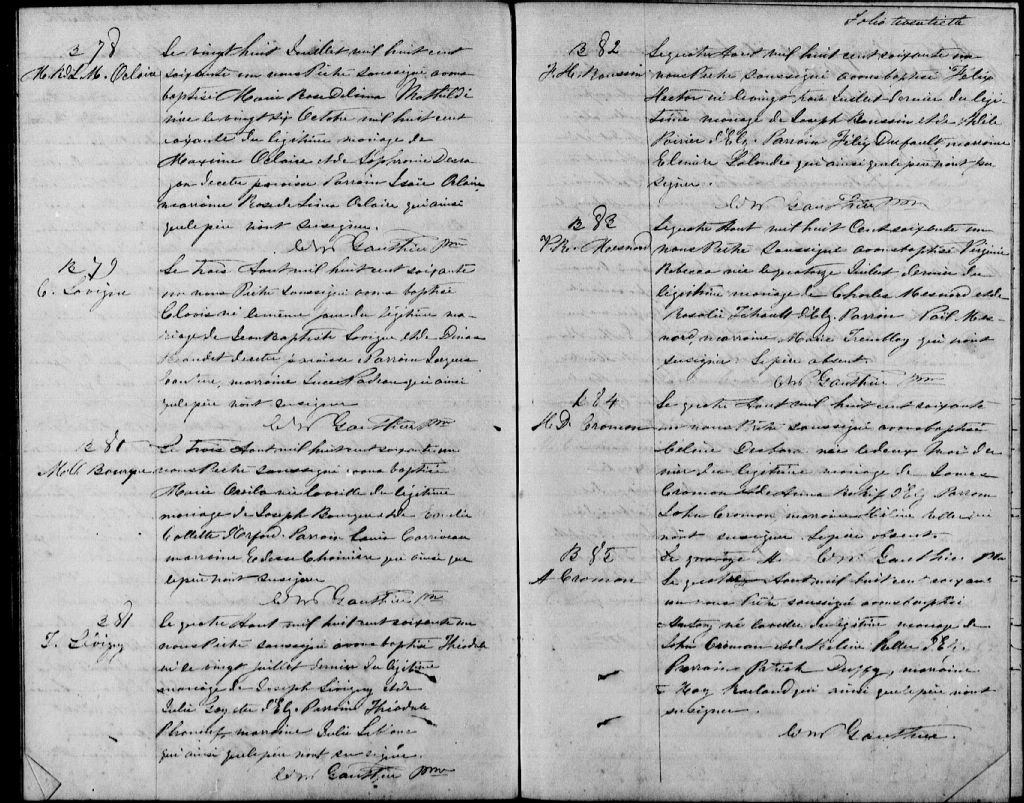 B 78
M. R. d. L. M. Ovlaire
Le vingt huit Juillet mil huit cent
soixante un nous Prêtre soussigné avons
baptisé Marie Rose Delima Mathilde
née le vingt six Octobre mil huit cent
soixante du légitime mariage de
Maxime Ovlaire et de Sophronie
de cette paroisse Parrain Isaïe Ovlaire
marraine Rose de Lima Ovlaire qui ainsi
que le père n'ont su signer.
Wm Gauthier Ptre
B 79
C. Lavigne
Le trois Aout mil huit cent soixante
un nous Prêtre soussigné avons baptisé
Clovis né le même jour du légitime ma-
riage de Jean Baptiste et de Dina
Beaudet de cette paroisse Parrain Jacques
Couture, marraine Luce Nadeau qui ainsi
que le père n'ont su signer
Wm Gauthier Ptre
B 80
M. U. Bourque
Le trois Aout mil huit cent soixante un
nous Prêtre soussigné avons baptisé
Marie née la veille du légitime
mariage de Joseph Bourque et de Emélie
Collette d'Orford. Parrain Louis Corriveau
marraine qui ainsi que
le père n'ont su signer
Wm Gauthier Ptre
B 81
T. Lévigny
Le quatre Aout mil huit cent soixante un
nous Prêtre soussigné avons baptisé Théodule
né le vingt juillet dernier du légitime
mariage de Joseph Lévigny et de
Julie Guy de d'Ely Parrain Théodule
marraine Julie
qui ainsi que le père n'ont su signer
Wm Gauthier Ptre
Folio vingtième
B 82
F. H. Roussin
Le quatre Aout mil huit cent soixante un
nous Prêtre soussigné avons baptisé Félix
Hector né le vingt trois Juillet dernier du légi-
time mariage de Joseph Roussin et de Adèle
Poirier d'Ely Parrain Félix Dufault marraine
Elmire Lalonde qui ainsi que le père n'ont su
signer.
Wm Gauthier Ptre
B 83
V. R. Mesnard
Le quatre Aout mil huit Cent soixante un
nous Prêtre soussigné avons baptisé Virginie
Rebecca née le quatorze Juillet dernier du
légitime mariage de Charles Mesnard et de
Rosalie Thibault d'Ely Parrain Mes-
nard, marraine Marie Tremblay qui n'ont
su signer le père absent
Wm Gauthier Ptre
B 84
H. D. Cromon
Le quatre Aout mil huit cent soixante
un nous Prêtre soussigné avons baptisé
née le deux Mai der-
nier du légitime mariage de
Cromon et de Anna d'Ely Parrain
John Cromon marraine Hélène Kelle
n'ont su signer le père absent.
Wm Gauthier Ptre
B 85
A Cromon
Le quatre Aout mil huit cent soixan
un nous Prêtre soussigné avons baptisé
né la veille du légitime mariage de
John Cromon et de Hélène Kelle d'Ely
Parrain Patrick Duffy, marraine
qui ainsi que le père n'ont
su signer.
Wm Gauthier.